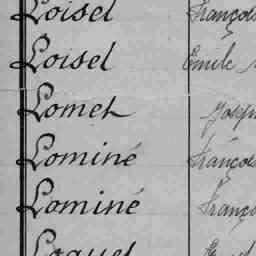 Loisel François
Loisel Emile
Lomet Joseph
Lominé François
Lominé Franço
Loquet